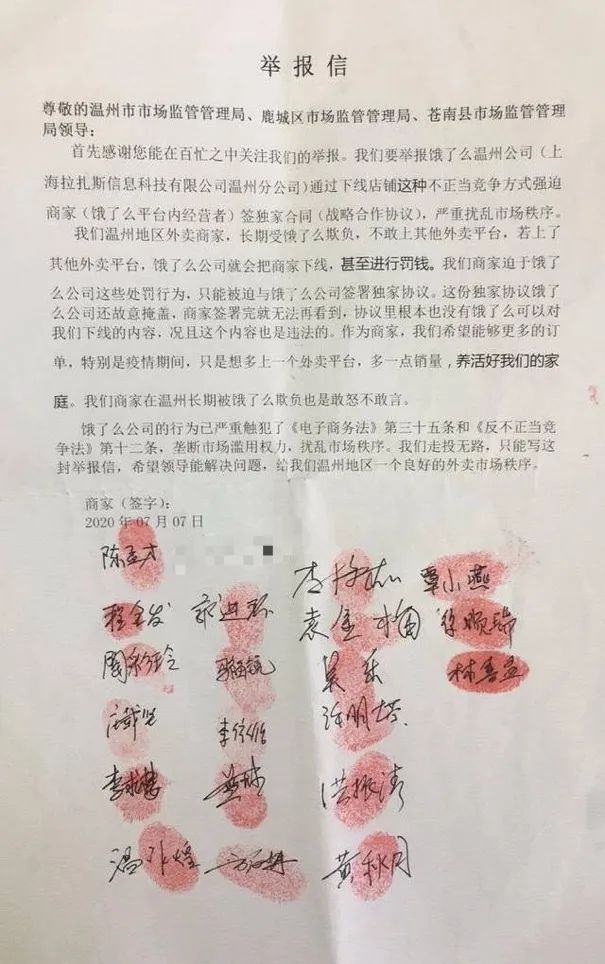 举报信
尊敬的温州市市场监管管理局、鹿城区市场监管管理局、苍南县市场监管管理
局领导：
首先感谢您能在百忙之中关注我们的举报。我们要举报饿了么温州公司（上
海拉扎斯信息科技有限公司温州分公司）通过下线店铺这种不正当竞争方式强迫
商家（饿了么平台内经营者）签独家合同（战略合作协议），严重扰乱市场秩序。
我们温州地区外卖商家，长期受饿了么欺负，不敢上其他外卖平台，若上了
其他外卖平台，饿了么公司就会把商家下线，甚至进行罚钱。我们商家迫于饿了
么公司这些处罚行为，只能被迫与饿了么公司签署独家协议。这份独家协议饿了
么公司还故意掩盖，商家签署完就无法再看到，协议里根本也没有饿了么可以对
我们下线的内容，况且这个内容也是违法的。作为商家，我们希望能够更多的订
单，特别是疫情期间，只是想多上一个外卖平台，多一点销量，养活好我们的家
庭。我们商家在温州长期被饿了么欺负也是敢怒不敢言。
饿了么公司的行为已严重触犯了《电子商务法》第三十五条和《反不正当竞
争法》第十二条，垄断市场滥用权力，扰乱市场秩序。我们走投无路，只能写这
封举报信，希望领导能解决问题，给我们温州地区一个良好的外卖市场秩序。
商家（签字）：
2020年07月07日
覃小燕
程金发
林善孟
李
洪振涛
黄秋月